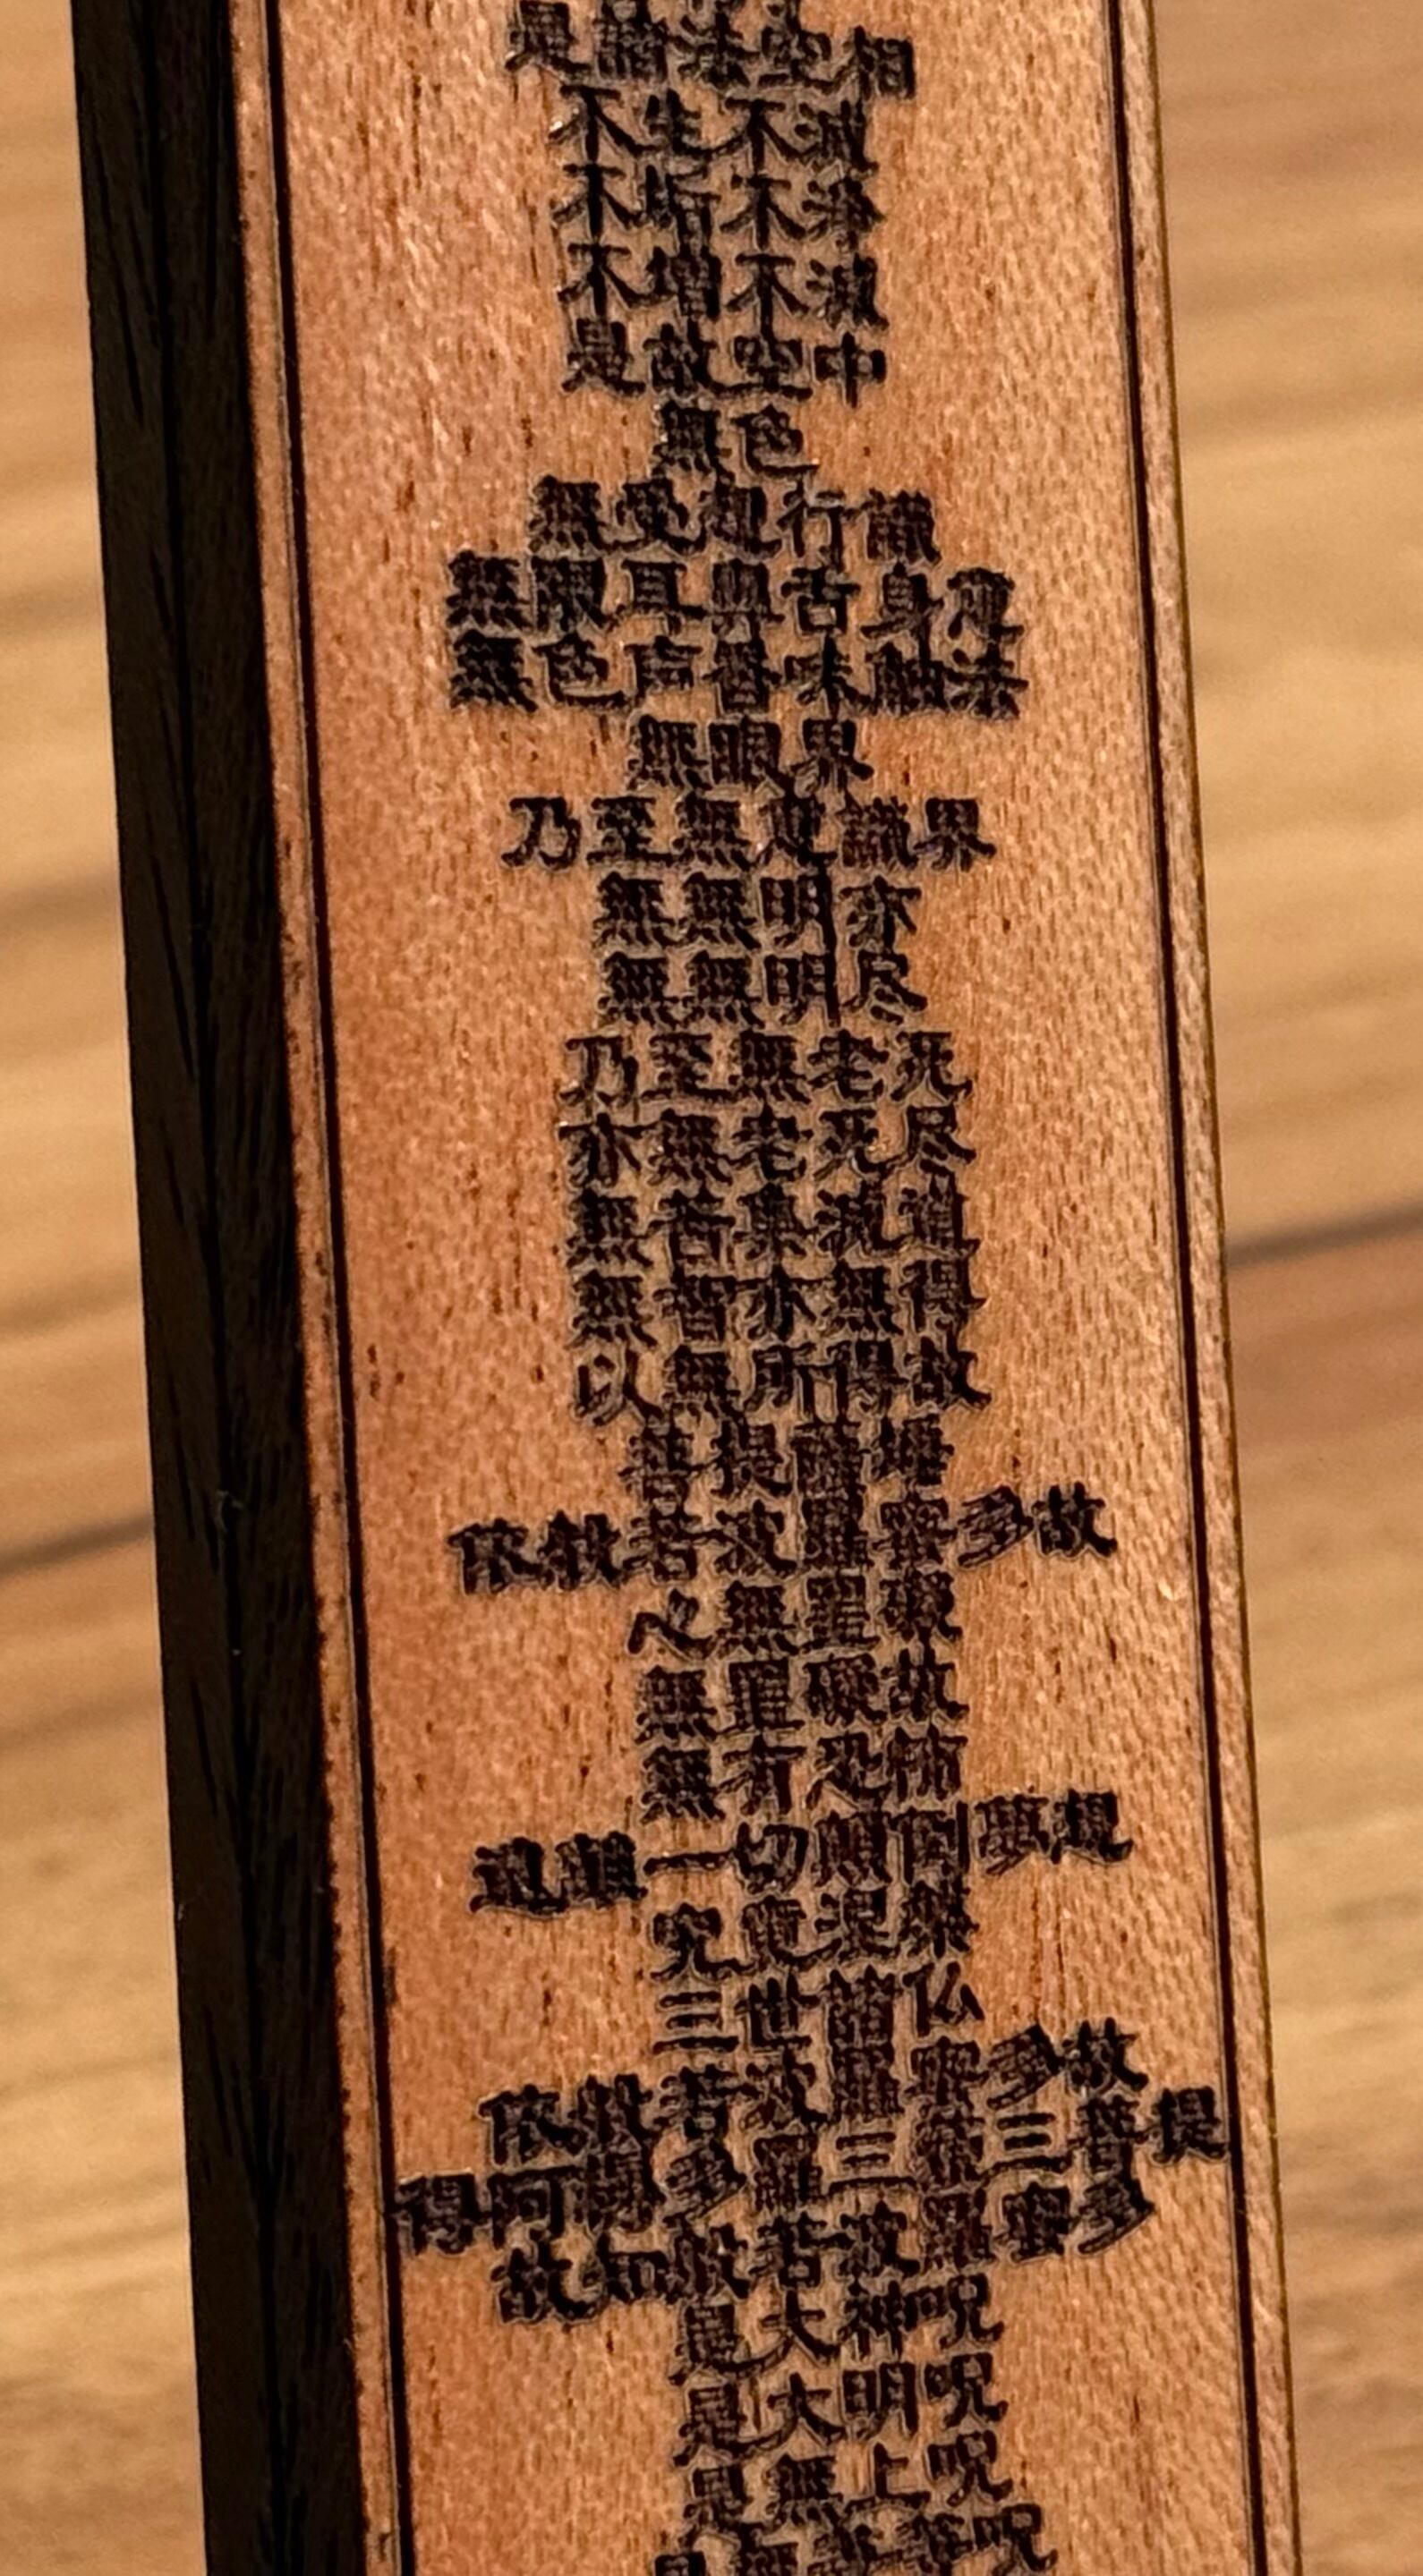 是諸法空相
不生不滅
不垢不浄
不増不減
是故空中
無色
無受想行識
無限耳鼻舌身意
無色声香味触法
無眼界
乃至無意識界
無無明亦
無無明尽
乃至無老死
亦無老死尽
無苦集滅道
無智亦無得
以無所得故
菩提薩埵
依般若波羅蜜多故
心無罣礙
無罣礙故
無有恐怖
遠離一切顛倒夢想
究竟涅槃
三世諸仏
依般若波羅蜜多故
得阿耨多羅三藐三菩提
故知般若波羅蜜多
是大神呪
是大明呪
是無上呪
是無等等呪